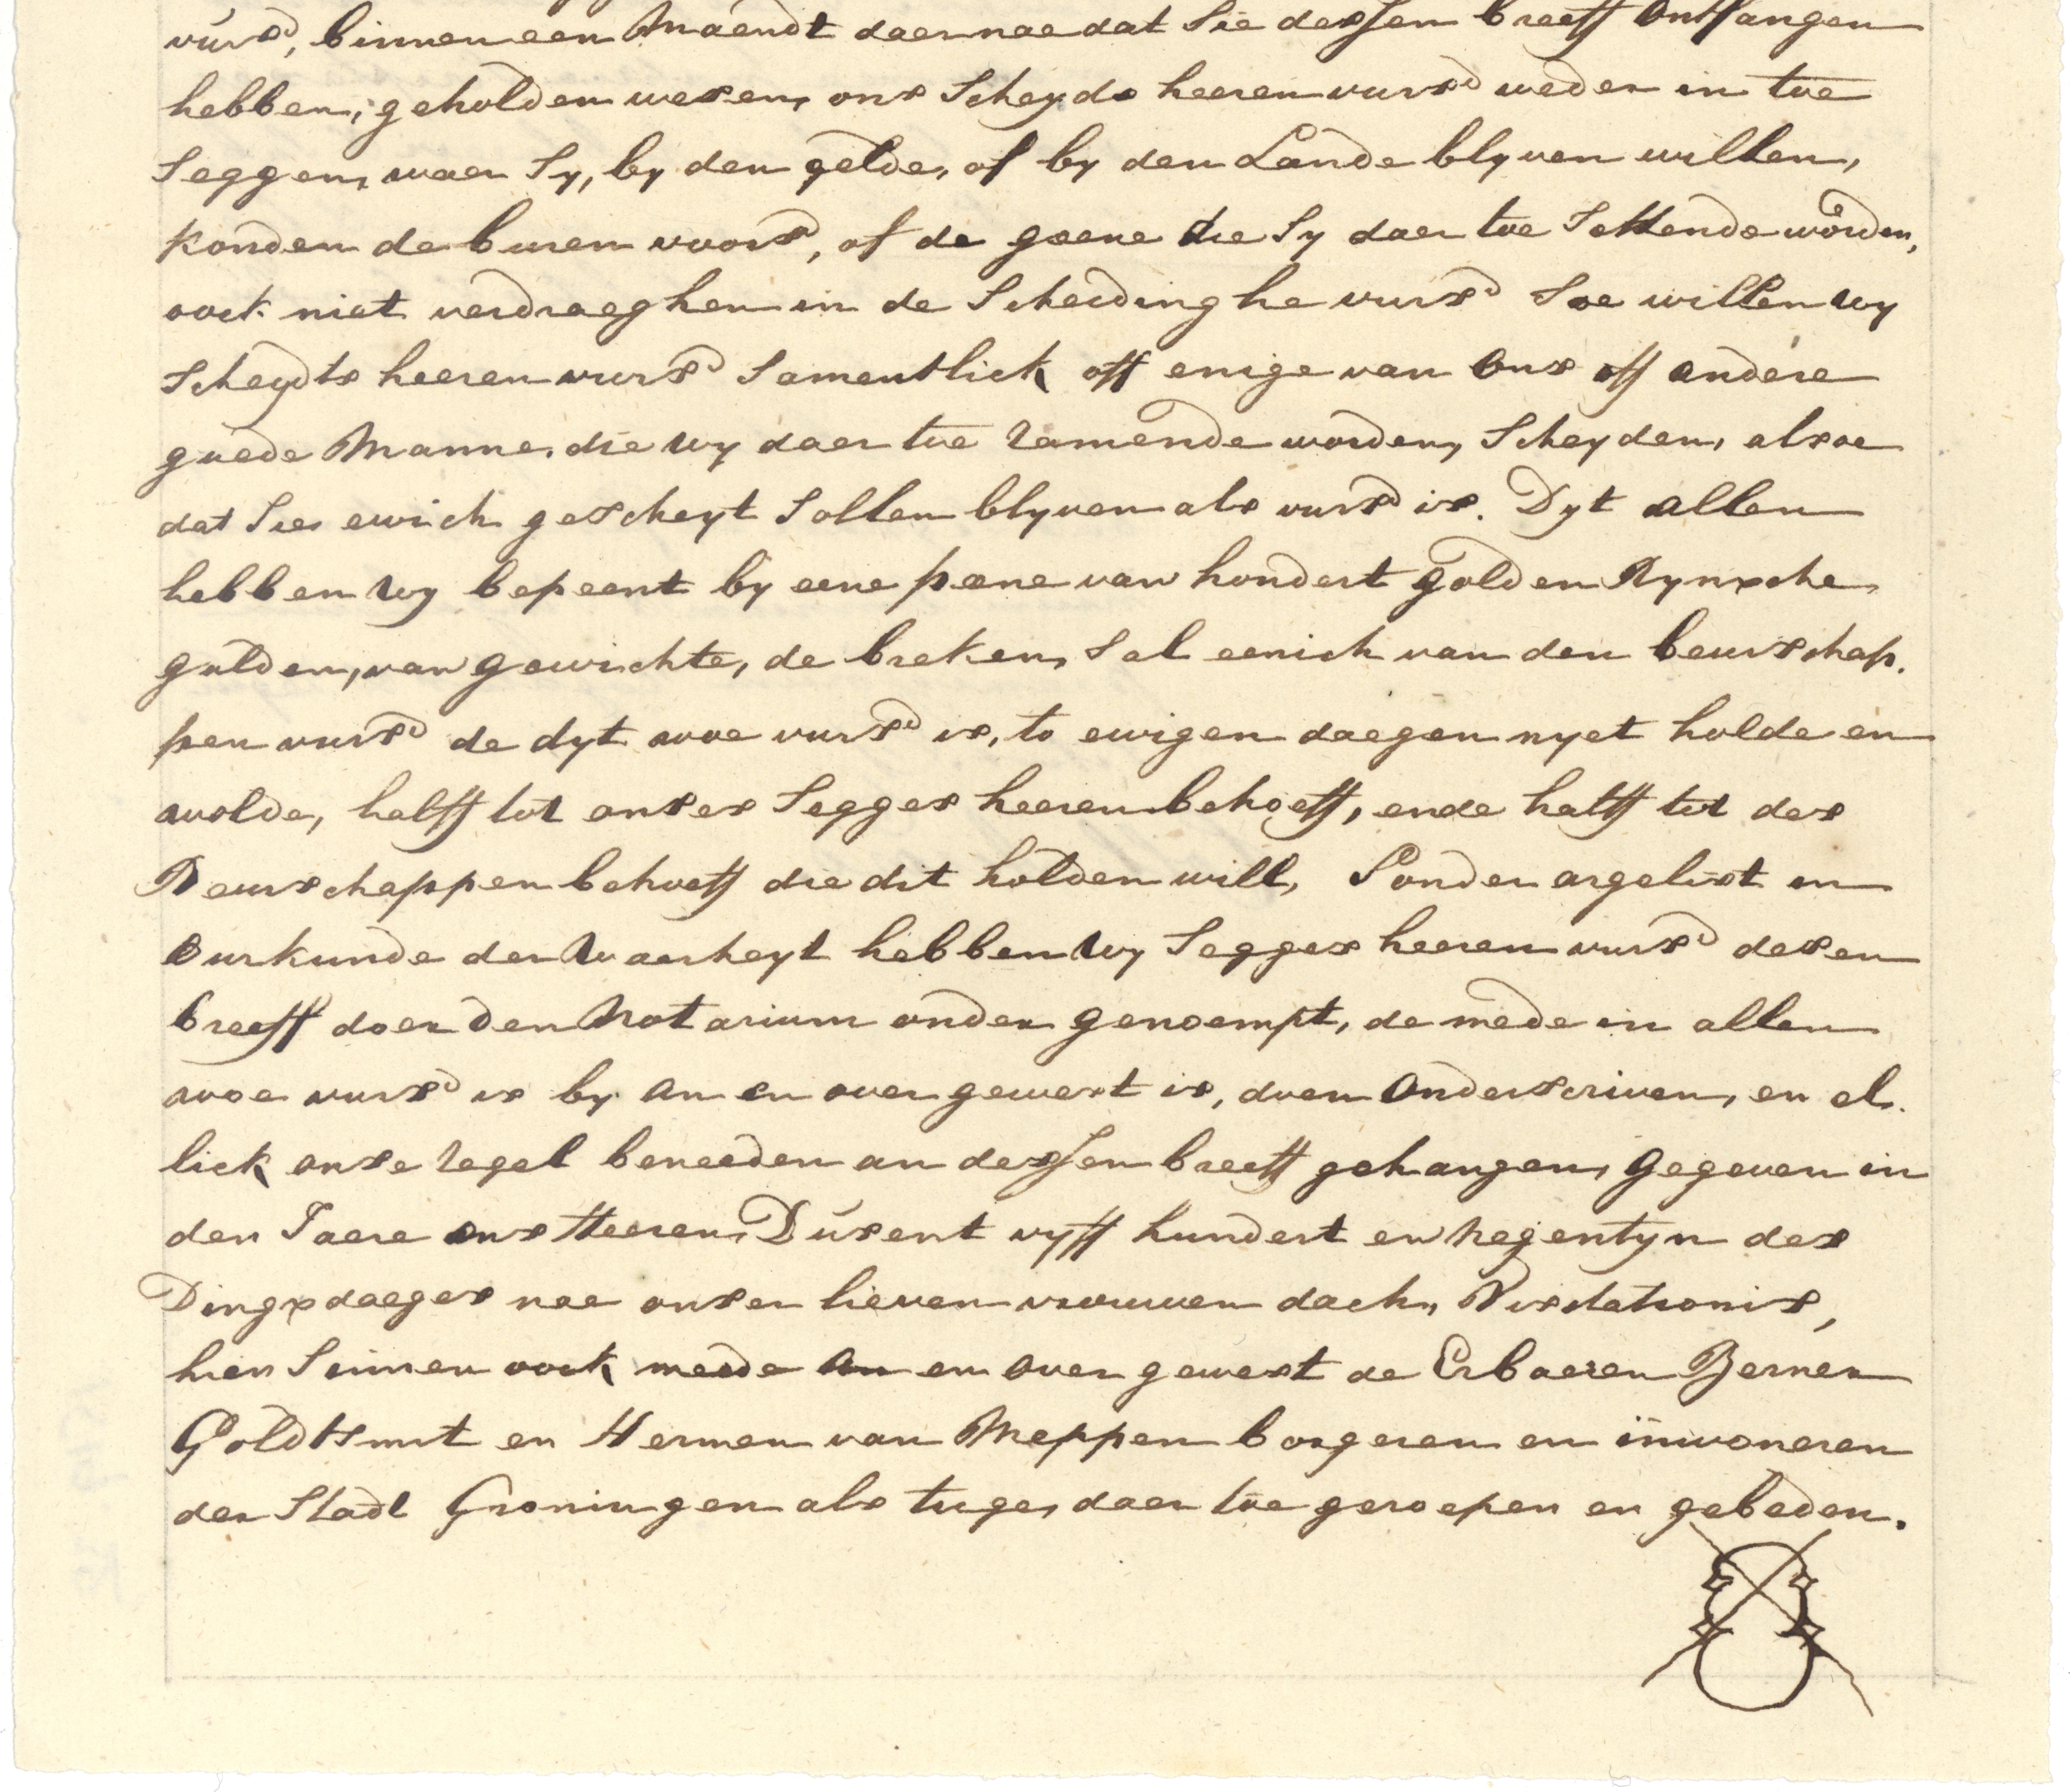 vursd, binnen een Maendt daer nae dat Sie dessen breeff Ontfangen
hebben, geholden wesen, ons Scheyds heeren vursd weder in toe
Seggen, waer Sy, by den gelde, of by den Lande blyven willen,
konden de buren voorsd, of de geene die Sy daer toe Settende worden,
oock niet verdraeghen in de Scheidinghe vursd Soe willen wy
Scheydts heeren vursd Samentlick off enige van Ons off andere
guede Manne, die wy daer toe ramende worden, Scheyden, alsoe
dat Sie ewich gescheyt Sollen blyven als vursd is. Dyt allen
hebben wy bepeent by eene peene van hondert golden Rynsche
gulden, van gewichte, de breken, Sal eenich van den beurschap.
pen vursd de dyt woe vursd is, to ewigen daegen nyet holde en
wolde, halff tot onses Segges heeren behoeff, ende halff tot des
Beurschappen behoeff die dit holden will, Sonder argelist en
Ourkunde der Waerheyt hebben wy Segges heeren vursd desen
breeff doer den Notarium onder genoempt, de mede in allen
woe vursd is by an en over gewest is, doen Onderscriven, en el.
lick onse segel beneeden an dessen breeff gehangen, gegeven in
den Jaere ons Heeren, Dusent vyff hundert en negentyn des
Dingsdaeges nae onser lieven vrouwen dach, Visitationis,
hier Sinnen oock mede an en over gewest de Erbaeren Berner
Goldtsmit en Hermen van Meppen borgeren en inwoneren
der Stadt Groningen als tuge, daer toe geroepen en gebeden.